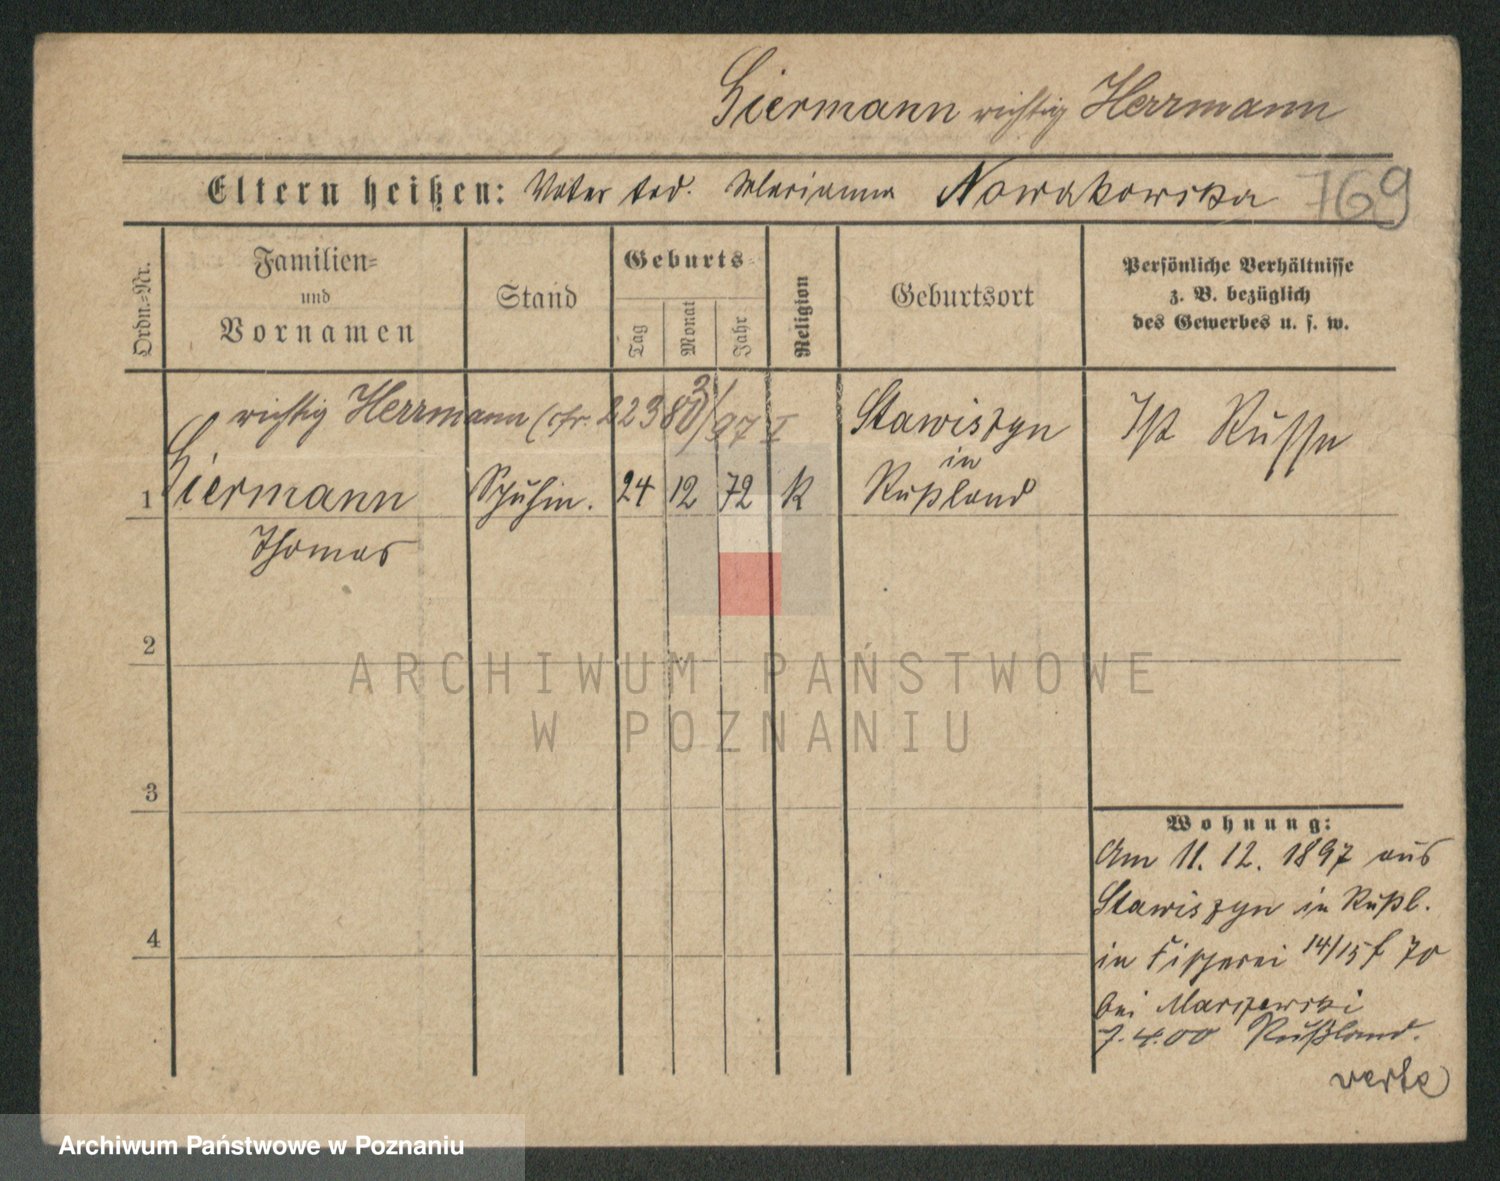 Hiermann richtig Herrmann
Eltern heißen: Vater tod. Marianna Nowakowska 769
Ordn.-Nr.
Familien-
und
Vornamen
Stand
Geburts-
Tag
Monat
Jahr
Religion
Geburtsort
Persönliche Verhältnisse
z. B. bezüglich
des Gewerbes u. s. w.
richtig Herrmann (cfr. 22380/97 I
1 Hiermann 24 12 72 K Stawiszyn
in
Rußland
Ist Russe
Thomas
2
3
4
Wohnung:
Am 11. 12. 1897 aus
Stawiszyn in Rußl.
in Fischerei 14/15 f 70
bei Marszewski
7.4.00 Rußland.
verte
ARCHIWUM PAŃSTWOWE
W POZNANIU
Archiwum Państwowe w Poznaniu